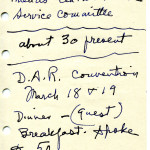 Service Committee
about 30 present
D.A.R. Convention
March 18 & 19
Dinner - (Guest)
Breakfast. Spoke